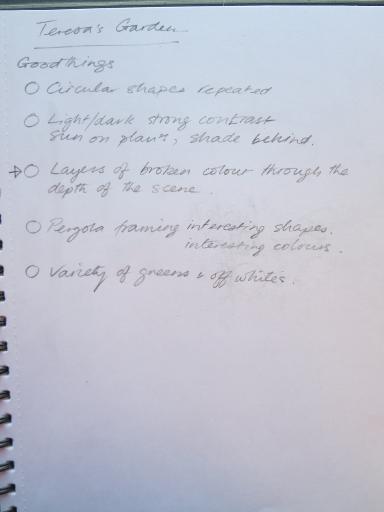 Teresa's Garden
Good things
Circular shapes repeated
Light/dark strong contrast
sun on plants, shade behind.
Layers of broken colour through the
depth of the scene.
Pergola framing interesting shapes.
interesting colours.
Variety of greens & off whites.